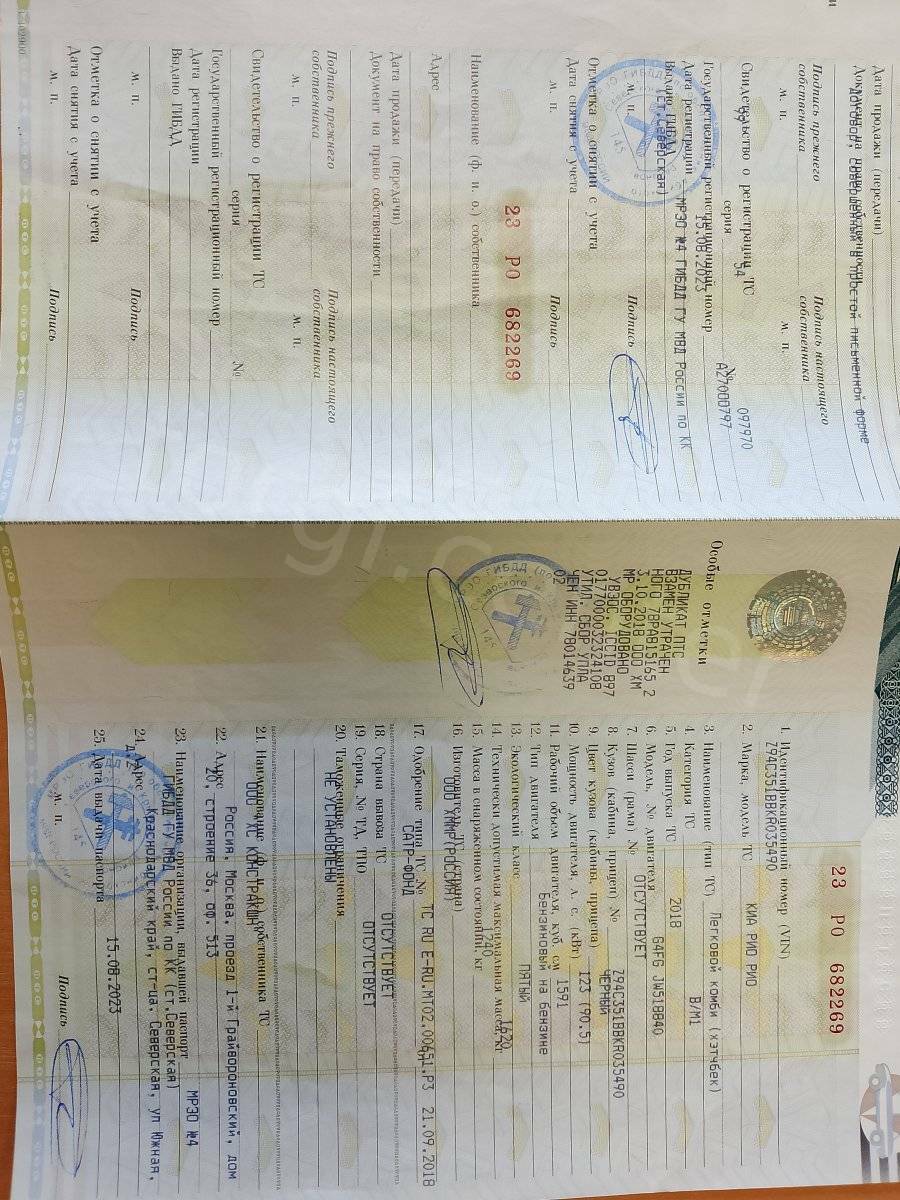 Дата продажи (передачи)
Документ на право собственности
договор, совершенный в простой письменной форме
Подпись прежнего собственника
Подпись настоящего собственника
М. П.
М. П.
Свидетельство о регистрации ТС
серия 99 54 № 097970
Государственный регистрационный номер А270ОО797
Дата регистрации 15.08.2023
Выдано ГИБДД МРЭО №4 ГИБДД ГУ МВД России по КК
(ст.Северская)
М. П.
Подпись
Отметка о снятии с учета
Дата снятия с учета
М. П.
Подпись
23 РО 682269
Наименование (ф. и. о.) собственника
Адрес
Дата продажи (передачи)
Документ на право собственности
Подпись прежнего собственника
Подпись настоящего собственника
М. П.
М. П.
Свидетельство о регистрации ТС
серия №
Государственный регистрационный номер
Дата регистрации
Выдано ГИБДД
М. П.
Подпись
Отметка о снятии с учета
Дата снятия с учета
М. П.
Подпись
Особые отметки
ДУБЛИКАТ ПТС
ВЗАМЕН УТРАЧЕН
НОГО 78РА815165 2
3.10.2018 ООО ХМ
МР ОБОРУДОВАНО
УВЭОС. ICCID 897
0177000032324108
УТИЛ. СБОР УПЛА
ЧЕН ИНН 78014639
02
23 РО 682269
1. Идентификационный номер (VIN)
Z94C351BBKR035490
2. Марка, модель ТС КИА РИО РИО
3. Наименование (тип ТС) Легковой комби (хэтчбек)
4. Категория ТС B/M1
5. Год выпуска ТС 2018
6. Модель, № двигателя G4FG JW518840
7. Шасси (рама) № ОТСУТСТВУЕТ
8. Кузов (кабина, прицеп) № Z94C351BBKR035490
9. Цвет кузова (кабины, прицепа) ЧЕРНЫЙ
10. Мощность двигателя, л. с. (кВт) 123 (90.5)
11. Рабочий объем двигателя, куб. см 1591
12. Тип двигателя Бензиновый на бензине
13. Экологический класс ПЯТЫЙ
14. Технически допустимая максимальная масса, кг 1620
15. Масса в снаряженном состоянии, кг 1240
16. Изготовитель ТС (страна)
ООО ХММР (РОССИЯ)
17. Одобрение типа ТС № ТС RU E-RU.МТ02.00651.Р3 21.09.2018
САТР-ФОНД
18. Страна вывоза ТС ОТСУТСТВУЕТ
19. Серия, № ТД, ТПО ОТСУТСТВУЕТ
20. Таможенные ограничения
НЕ УСТАНОВЛЕНЫ
21. Наименование (ф. и. о.) собственника ТС
22. Адрес Россия, Москва, проезд 1-й Грайвороновский, дом
20, строение 36, оф. 513
23. Наименование организации, выдавшей паспорт МРЭО №4
ГИБДД ГУ МВД России по КК (ст.Северская)
24. Адрес Краснодарский край, ст-ца. Северская, ул Южная,
25. Дата выдачи паспорта 15.08.2023
М. П.
Подпись